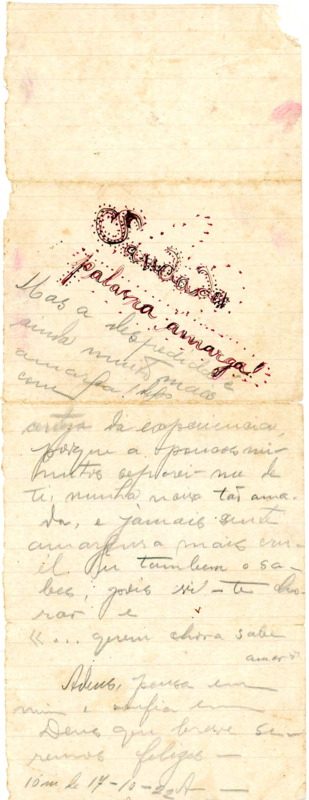 Saudade
palavra amarga!
Mas a despedida é
ainda muito mais
amarga!
com
certeza da experiencia,
porque a poucos mi-
nutos separei-me de
ti, minha noiva tão ama-
da, e jámais senti
amargura mais cru-
el. Tu tambem o sa-
bes, pois vi-te cho-
rar e
«... quem chora sabe
amar»
Adeus, pensa em
mim e confia em
Deus que breve se-
remos felizes —
10m de 17-10-22